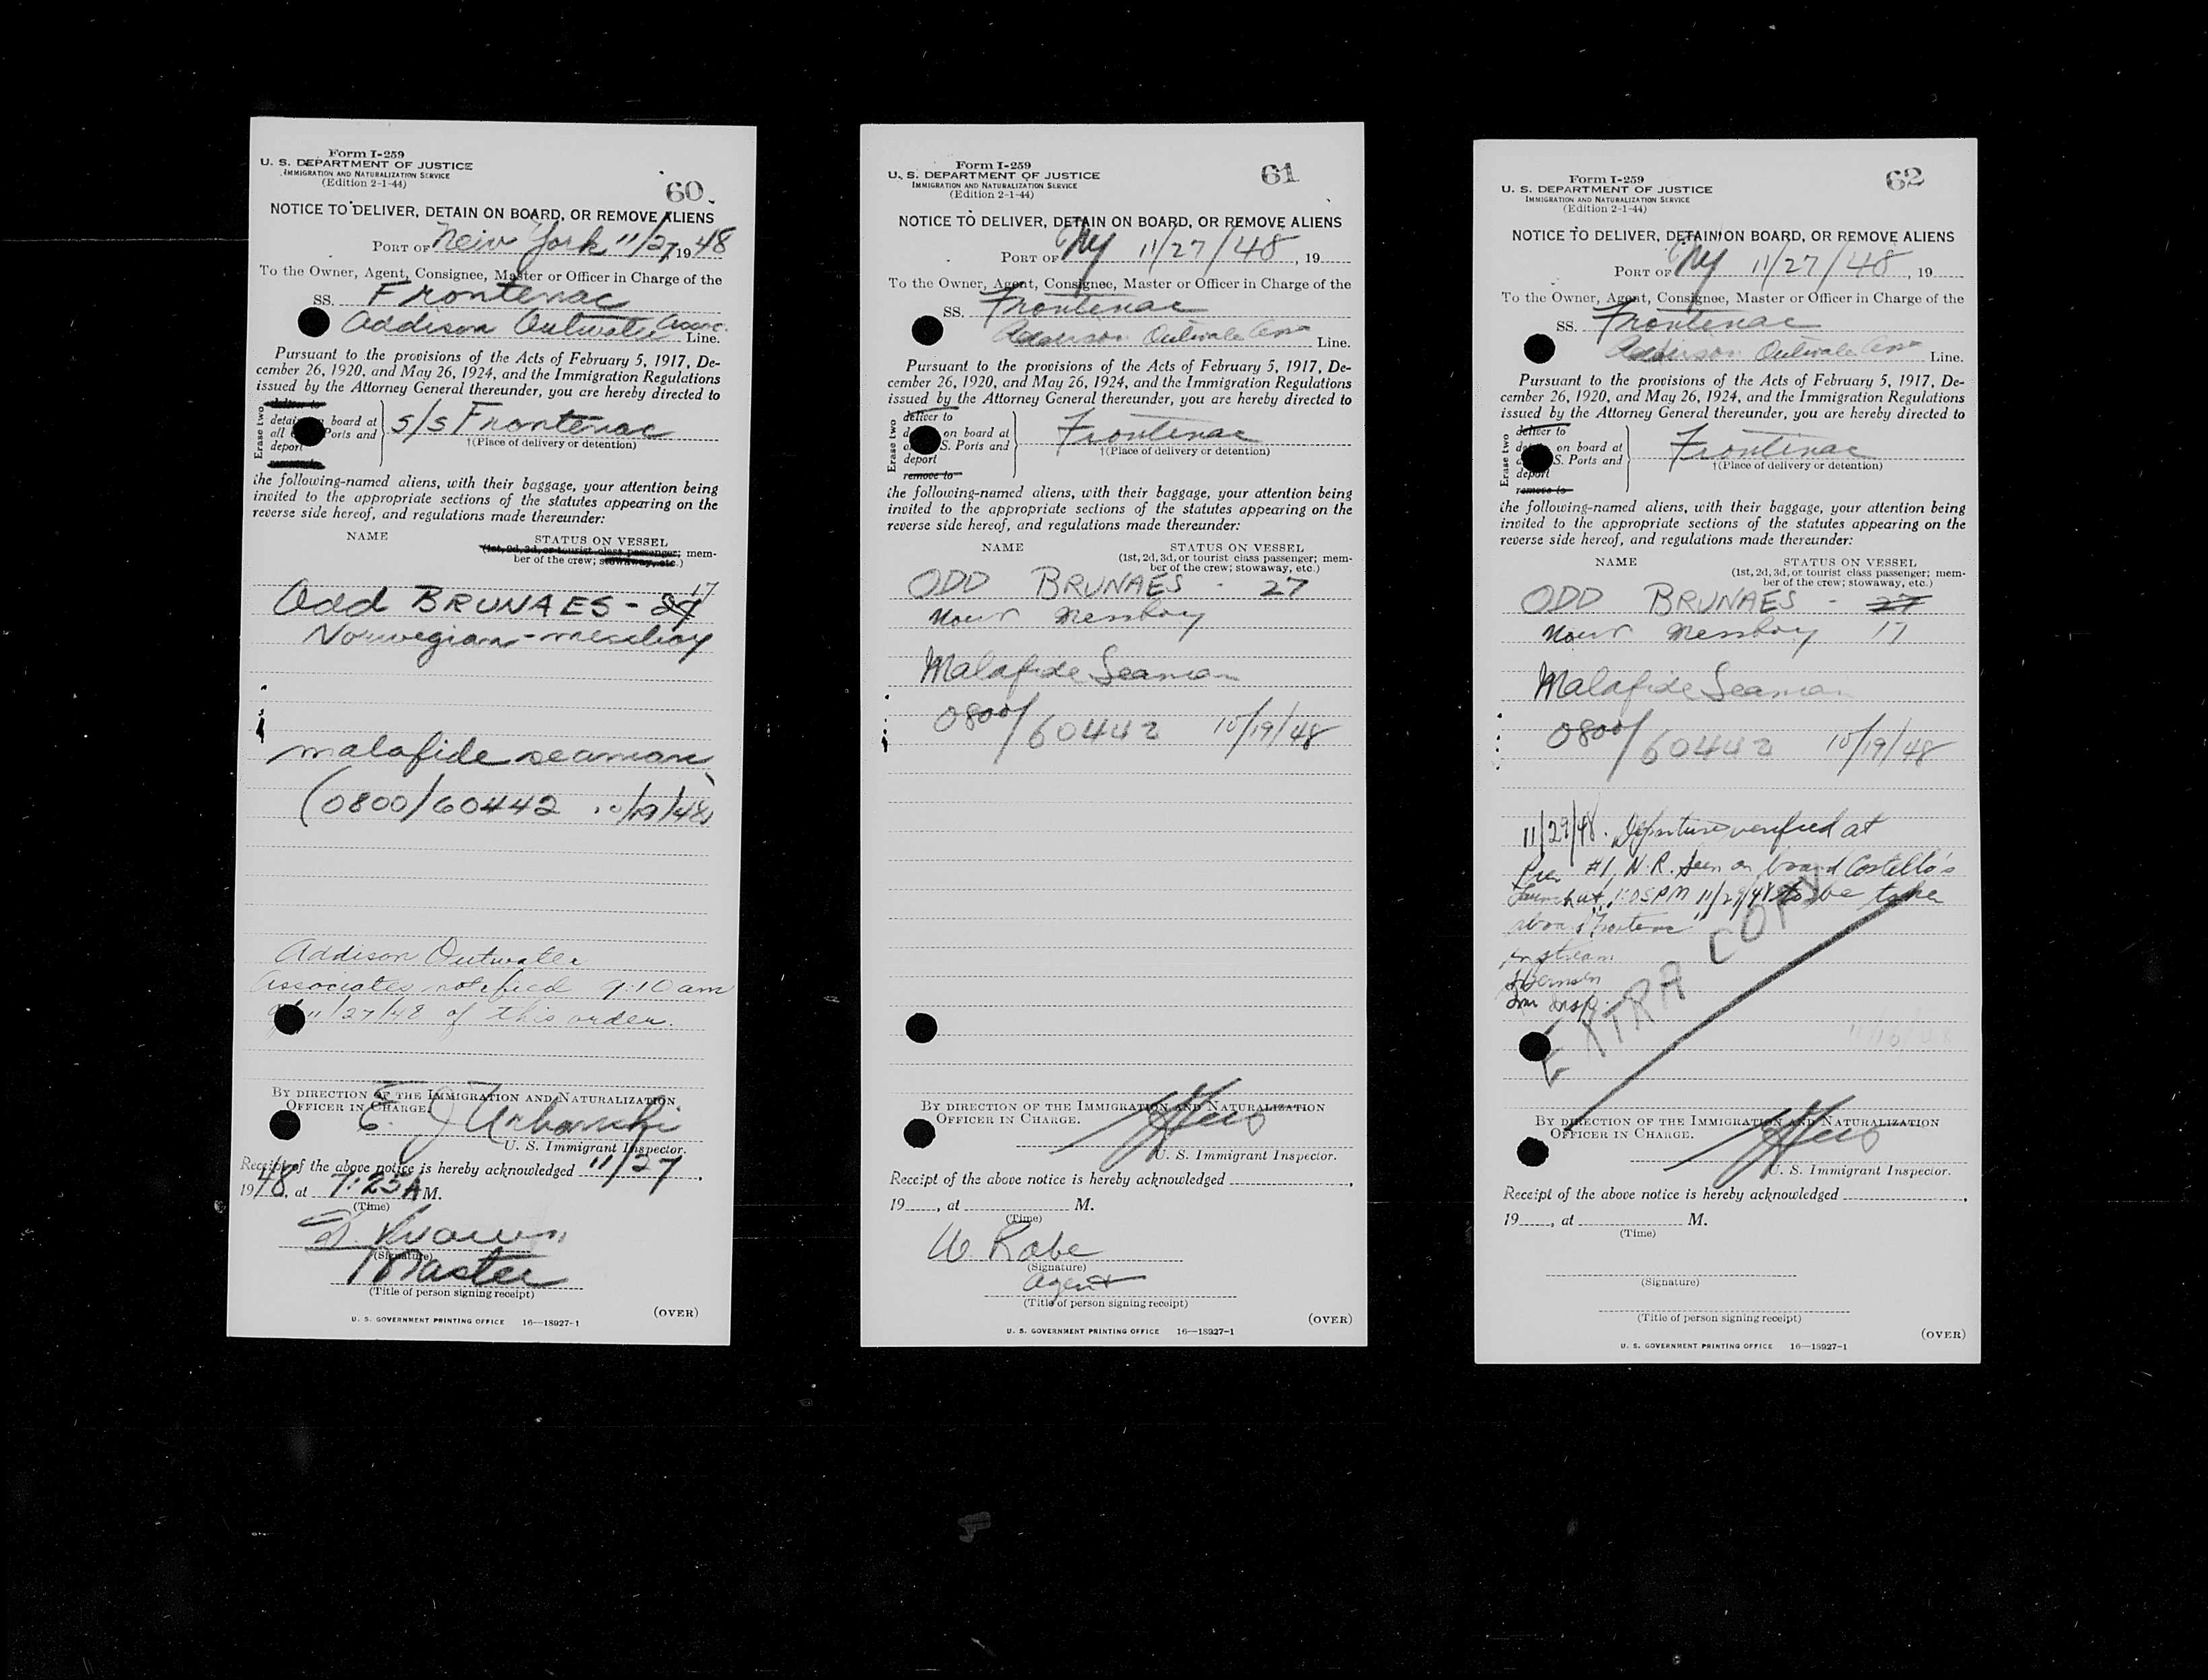 Form I-259
U. S. DEPARTMENT OF JUSTICE
IMMIGRATION AND NATURALIZATION SERVICE
(Edition 2-1-44)
60
NOTICE TO DELIVER, DETAIN ON BOARD, OR REMOVE ALIENS
PORT OF New York 11/27, 1948
To the Owner, Agent, Consignee, Master or Officer in Charge of the
SS. Frontenac
Addison Outwater Assoc. Line.
Pursuant to the provisions of the Acts of February 5, 1917, De-
cember 26, 1920, and May 26, 1924, and the Immigration Regulations
issued by the Attorney General thereunder, you are hereby directed to
Erase two
deliver to
board at
all Ports and
deport
s/s Frontenac
†(Place of delivery or detention)
the following-named aliens, with their baggage, your attention being
invited to the appropriate sections of the statutes appearing on the
reverse side hereof, and regulations made thereunder:
NAME STATUS ON VESSEL
(1st, 2d, 3d, or tourist class passenger; mem-
ber of the crew; stowaway, etc.)
17
Odd BRUNAES - 27
Norwegian - messboy
malafide seaman
(0800/60442 10/19/48)
Addison Outwater
Associates notified 9:10 am
11/27/48 of this order.
BY DIRECTION OF THE IMMIGRATION AND NATURALIZATION
OFFICER IN CHARGE.
E. J. Urbanski
U. S. Immigrant Inspector.
Receipt of the above notice is hereby acknowledged 11/27,
1948, at 7:25 A M.
(Time)
(Signature)
Master
(Title of person signing receipt)
(OVER)
U. S. GOVERNMENT PRINTING OFFICE 16—18927-1
Form I-259
U. S. DEPARTMENT OF JUSTICE
IMMIGRATION AND NATURALIZATION SERVICE
(Edition 2-1-44)
61
NOTICE TO DELIVER, DETAIN ON BOARD, OR REMOVE ALIENS
PORT OF NY 11/27/48, 19
To the Owner, Agent, Consignee, Master or Officer in Charge of the
SS. Frontenac
Outwater Line.
Pursuant to the provisions of the Acts of February 5, 1917, De-
cember 26, 1920, and May 26, 1924, and the Immigration Regulations
issued by the Attorney General thereunder, you are hereby directed to
Erase two
deliver to
on board at
S. Ports and
deport
remove to
Frontenac
†(Place of delivery or detention)
the following-named aliens, with their baggage, your attention being
invited to the appropriate sections of the statutes appearing on the
reverse side hereof, and regulations made thereunder:
NAME STATUS ON VESSEL
(1st, 2d, 3d, or tourist class passenger; mem-
ber of the crew; stowaway, etc.)
ODD BRUNAES - 27
Messboy
Malafide Seaman
0800/60442 10/19/48
BY DIRECTION OF THE IMMIGRATION AND NATURALIZATION
OFFICER IN CHARGE.
U. S. Immigrant Inspector.
Receipt of the above notice is hereby acknowledged ,
19 , at M.
(Time)
W. Rabe
(Signature)
Agent
(Title of person signing receipt)
(OVER)
U. S. GOVERNMENT PRINTING OFFICE 16—18927-1
Form I-259
U. S. DEPARTMENT OF JUSTICE
IMMIGRATION AND NATURALIZATION SERVICE
(Edition 2-1-44)
62
NOTICE TO DELIVER, DETAIN ON BOARD, OR REMOVE ALIENS
PORT OF NY 11/27/48, 19
To the Owner, Agent, Consignee, Master or Officer in Charge of the
SS. Frontenac
Outwater Line.
Pursuant to the provisions of the Acts of February 5, 1917, De-
cember 26, 1920, and May 26, 1924, and the Immigration Regulations
issued by the Attorney General thereunder, you are hereby directed to
Erase two
deliver to
on board at
S. Ports and
deport
remove to
Frontenac
†(Place of delivery or detention)
the following-named aliens, with their baggage, your attention being
invited to the appropriate sections of the statutes appearing on the
reverse side hereof, and regulations made thereunder:
NAME STATUS ON VESSEL
(1st, 2d, 3d, or tourist class passenger; mem-
ber of the crew; stowaway, etc.)
ODD BRUNAES - 27
Messboy 17
Malafide Seaman
0800/60442 10/19/48
11/29/48. Departure verified at
Pier #1, N.R. Seen on board Costello's
Launch at 1:05 PM 11/29/48 to be taken
aboard "Frontenac"
in stream
Imm Insp.
EXTRA COPY
BY DIRECTION OF THE IMMIGRATION AND NATURALIZATION
OFFICER IN CHARGE.
U. S. Immigrant Inspector.
Receipt of the above notice is hereby acknowledged ,
19 , at M.
(Time)
(Signature)
(Title of person signing receipt)
(OVER)
U. S. GOVERNMENT PRINTING OFFICE 16—18927-1